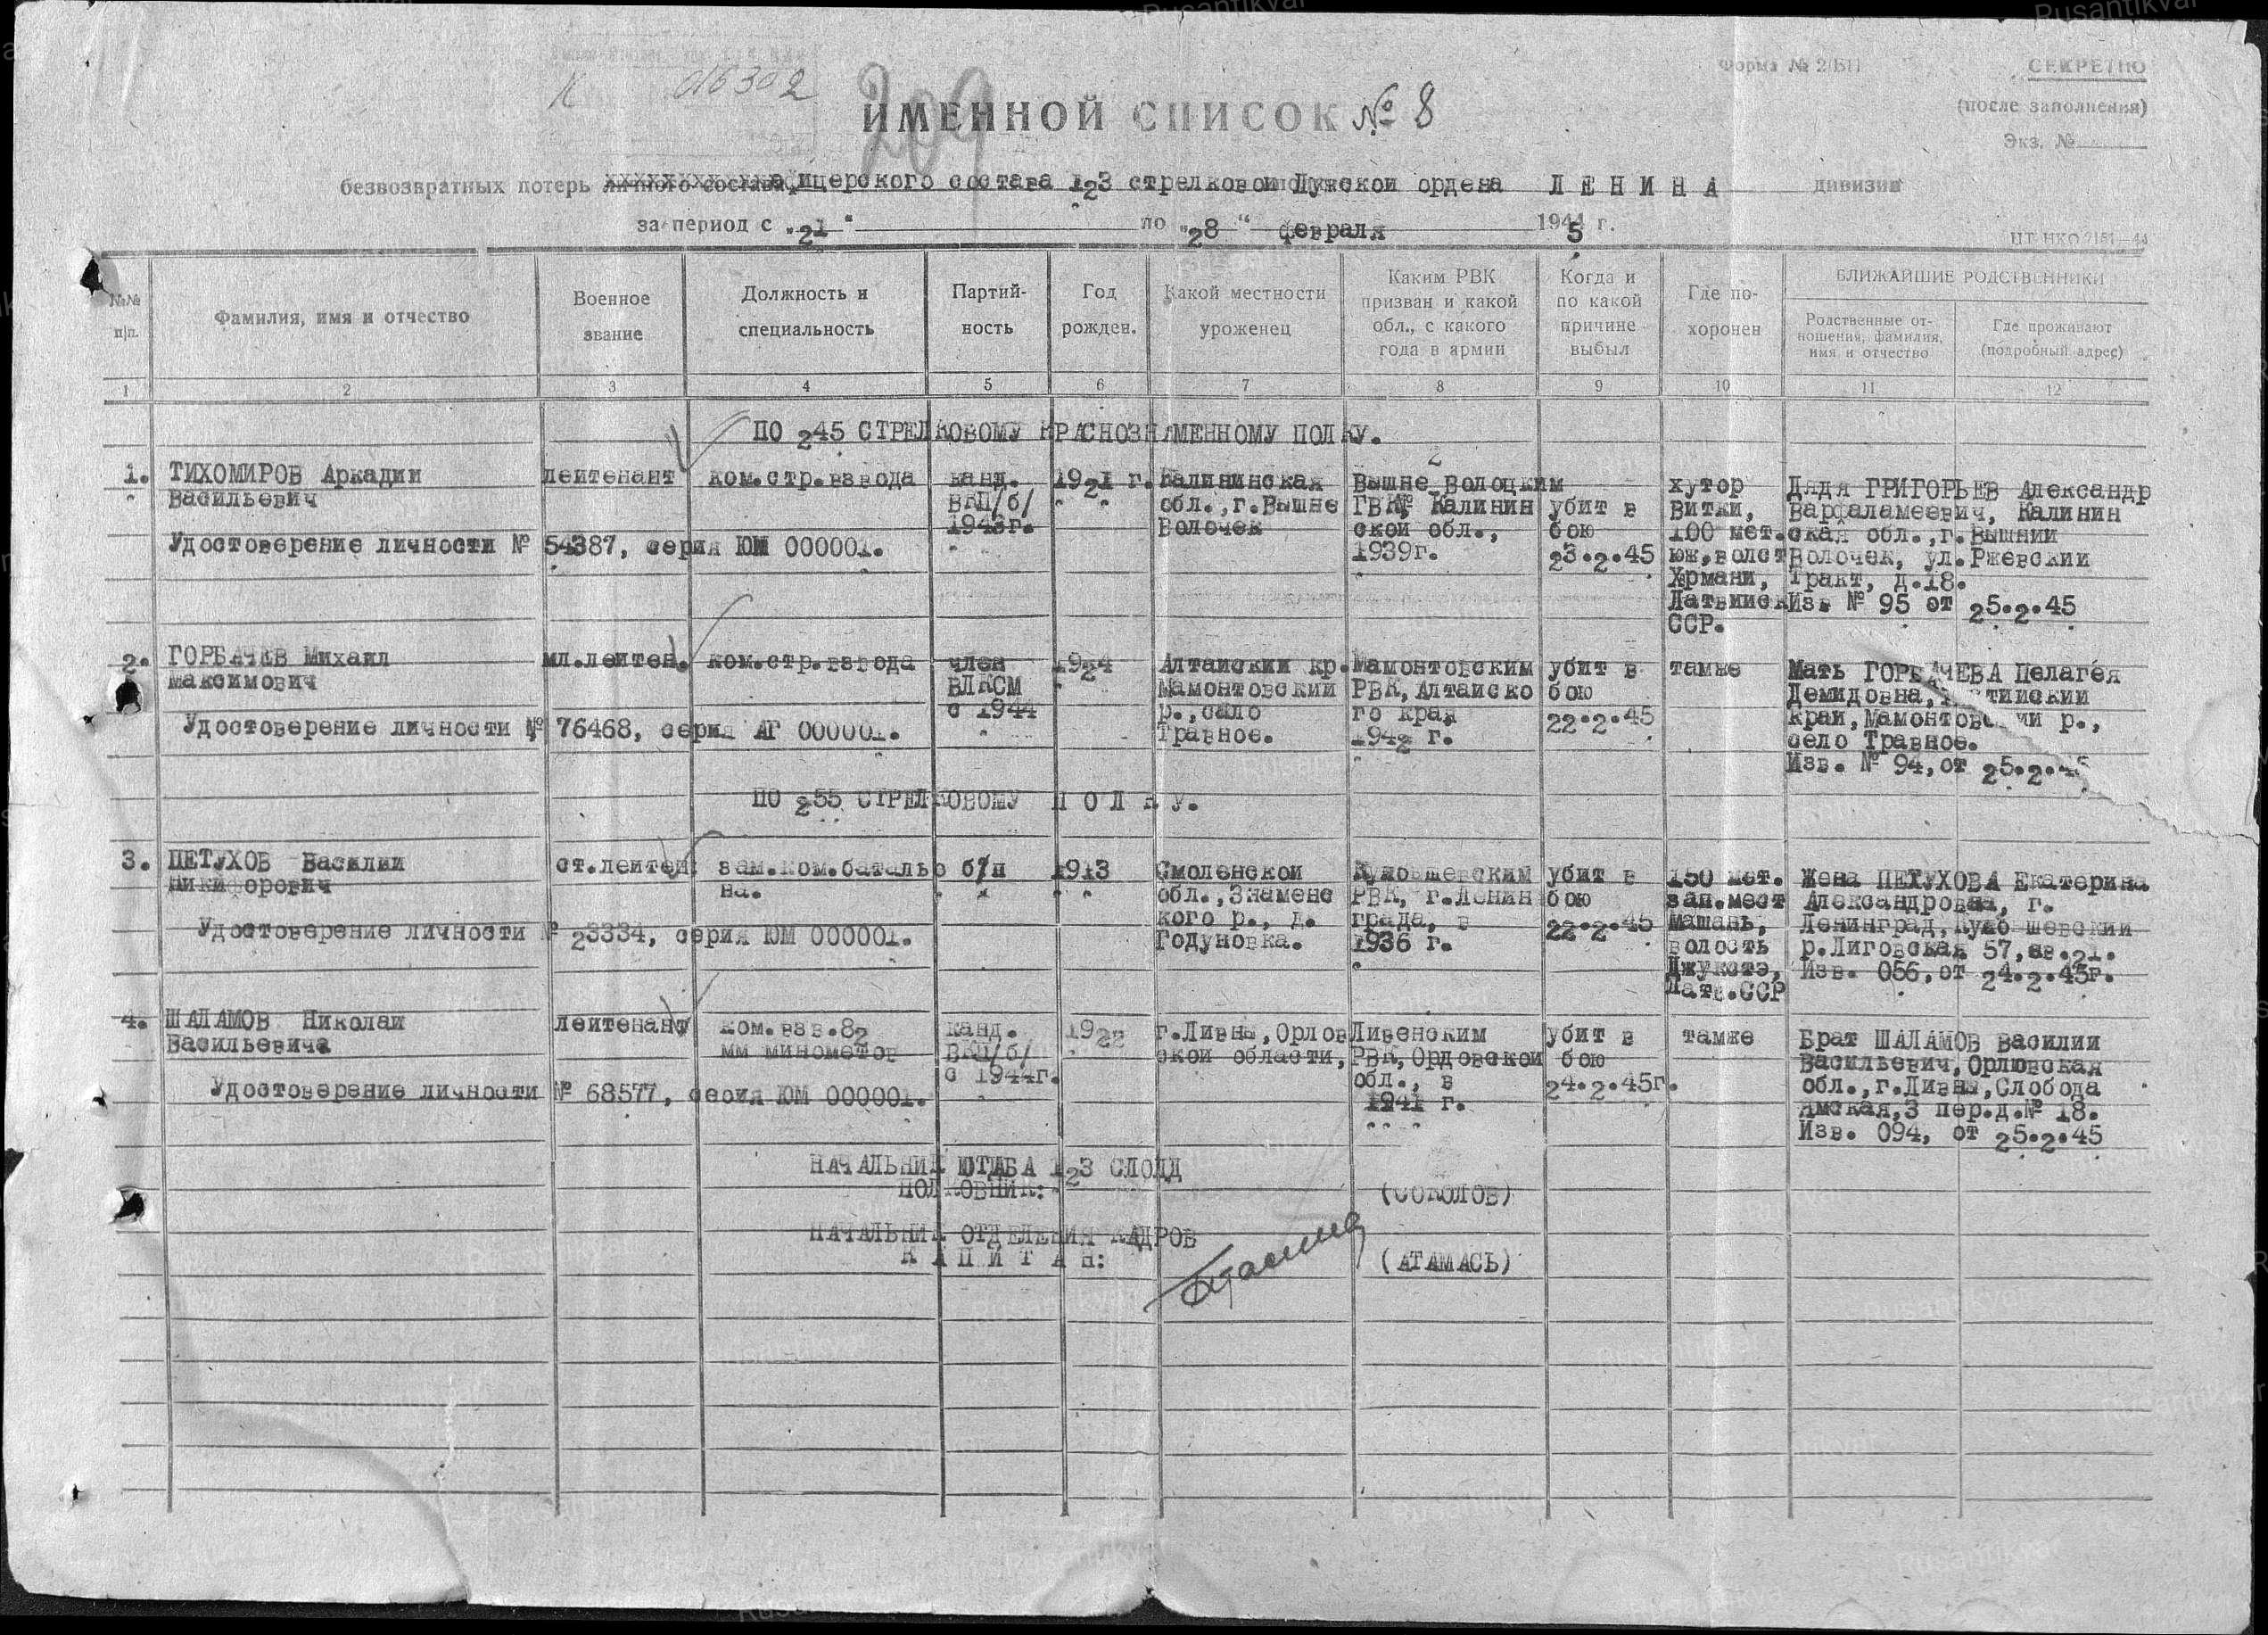 К 016302
209
Форма № 2/БП
СЕКРЕТНО
(после заполнения)
Экз. №
ИМЕННОЙ СПИСОК № 8
безвозвратных потерь личного состава офицерского состава 123 стрелковой Лужской ордена ЛЕНИНА дивизии
за период с "21" по "28" февраля 1945 г.
№№ п/п.
Фамилия, имя и отчество
Военное звание
Должность и специальность
Партий-ность
Год рожден.
Какой местности уроженец
Каким РВК призван и какой обл., с какого года в армии
Когда и по какой причине выбыл
Где по-хоронен
БЛИЖАЙШИЕ РОДСТВЕННИКИ
Родственные от-ношения, фамилия, имя и отчество
Где проживают (подробный адрес)
1 2 3 4 5 6 7 8 9 10 11 12
ПО 245 СТРЕЛКОВОМУ КРАСНОЗНАМЕННОМУ ПОЛКУ.
1. ТИХОМИРОВ Аркадий лейтенант ком.стр.взвода канд. 1921 г. Калининская Вышне Волоцким хутор Дядя ГРИГОРЬЕВ Александр
Васильевич ВКП/б/ обл.,г.Вышне ГВК, Калинин убит в Витки, Варфаламеевич, Калинин
1943г. Волочек ской обл., бою 100 мет. ская обл.,г.Вышний
Удостоверение личности № 54387, серия ЮМ 000001. 1939г. 23.2.45 юж,волст Волочек, ул.Ржевский
Хрмани, Тракт, д.18.
Латвийск Изв № 95 от 25.2.45
ССР.
2. ГОРБАЧЕВ Михаил мл.лейтен. ком.стр.взвода член 1924 Алтайский кр. Мамонтовским убит в тамже Мать ГОРБАЧЕВА Пелагея
Максимович ВЛКСМ Мамонтовский РВК, Алтайско бою Демидовна,
с 1944 р.,село го края 22.2.45 край, Мамонтовский р.,
Удостоверение личности № 76468, серия АГ 000001. Травное. 1942 г. село Травное.
Изв. № 94,от 25.2.45
ПО 255 СТРЕЛКОВОМУ ПОЛКУ.
3. ПЕТУХОВ Василий ст.лейтен. зам.ком.баталью б/п 1913 Смоленской Куйбышевским убит в 150 мет. Жена ПЕТУХОВА Екатерина
Никифорович на. обл.,Знаменс РВК, г.Ленин бою зап.мест Александровна, г.
кого р., д. града, в 22.2.45 Машань, Ленинград,Куйбышевский
Удостоверение личности № 23334, серия ЮМ 000001. Годуновка. 1936 г. волость р.Лиговская 57,кв.21.
Джукстэ, Изв. 056,от 24.2.45г.
Латв.ССР
4. ШАЛАМОВ Николай лейтенант ком.взв.82 канд. 1922 г.Ливны,Орлов Ливенским убит в тамже Брат ШАЛАМОВ Василий
Васильевича мм минометов ВКП/б/ ской области, РВК,Орловской бою Васильевич,Орловская
с 1944г. обл., в 24.2.45г. обл.,г.Ливны,Слобода
Удостоверение личности № 68577, серия ЮМ 000001. 1941 г. Ямская,3 пер.д.№ 18.
Изв. 094, от 25.2.45
НАЧАЛЬНИК ШТАБА 123 СЛОЛД
ПОЛКОВНИК: (СОКОЛОВ)
НАЧАЛЬНИК ОТДЕЛЕНИЯ КАДРОВ
КАПИТАН: (АТАМАСЬ)